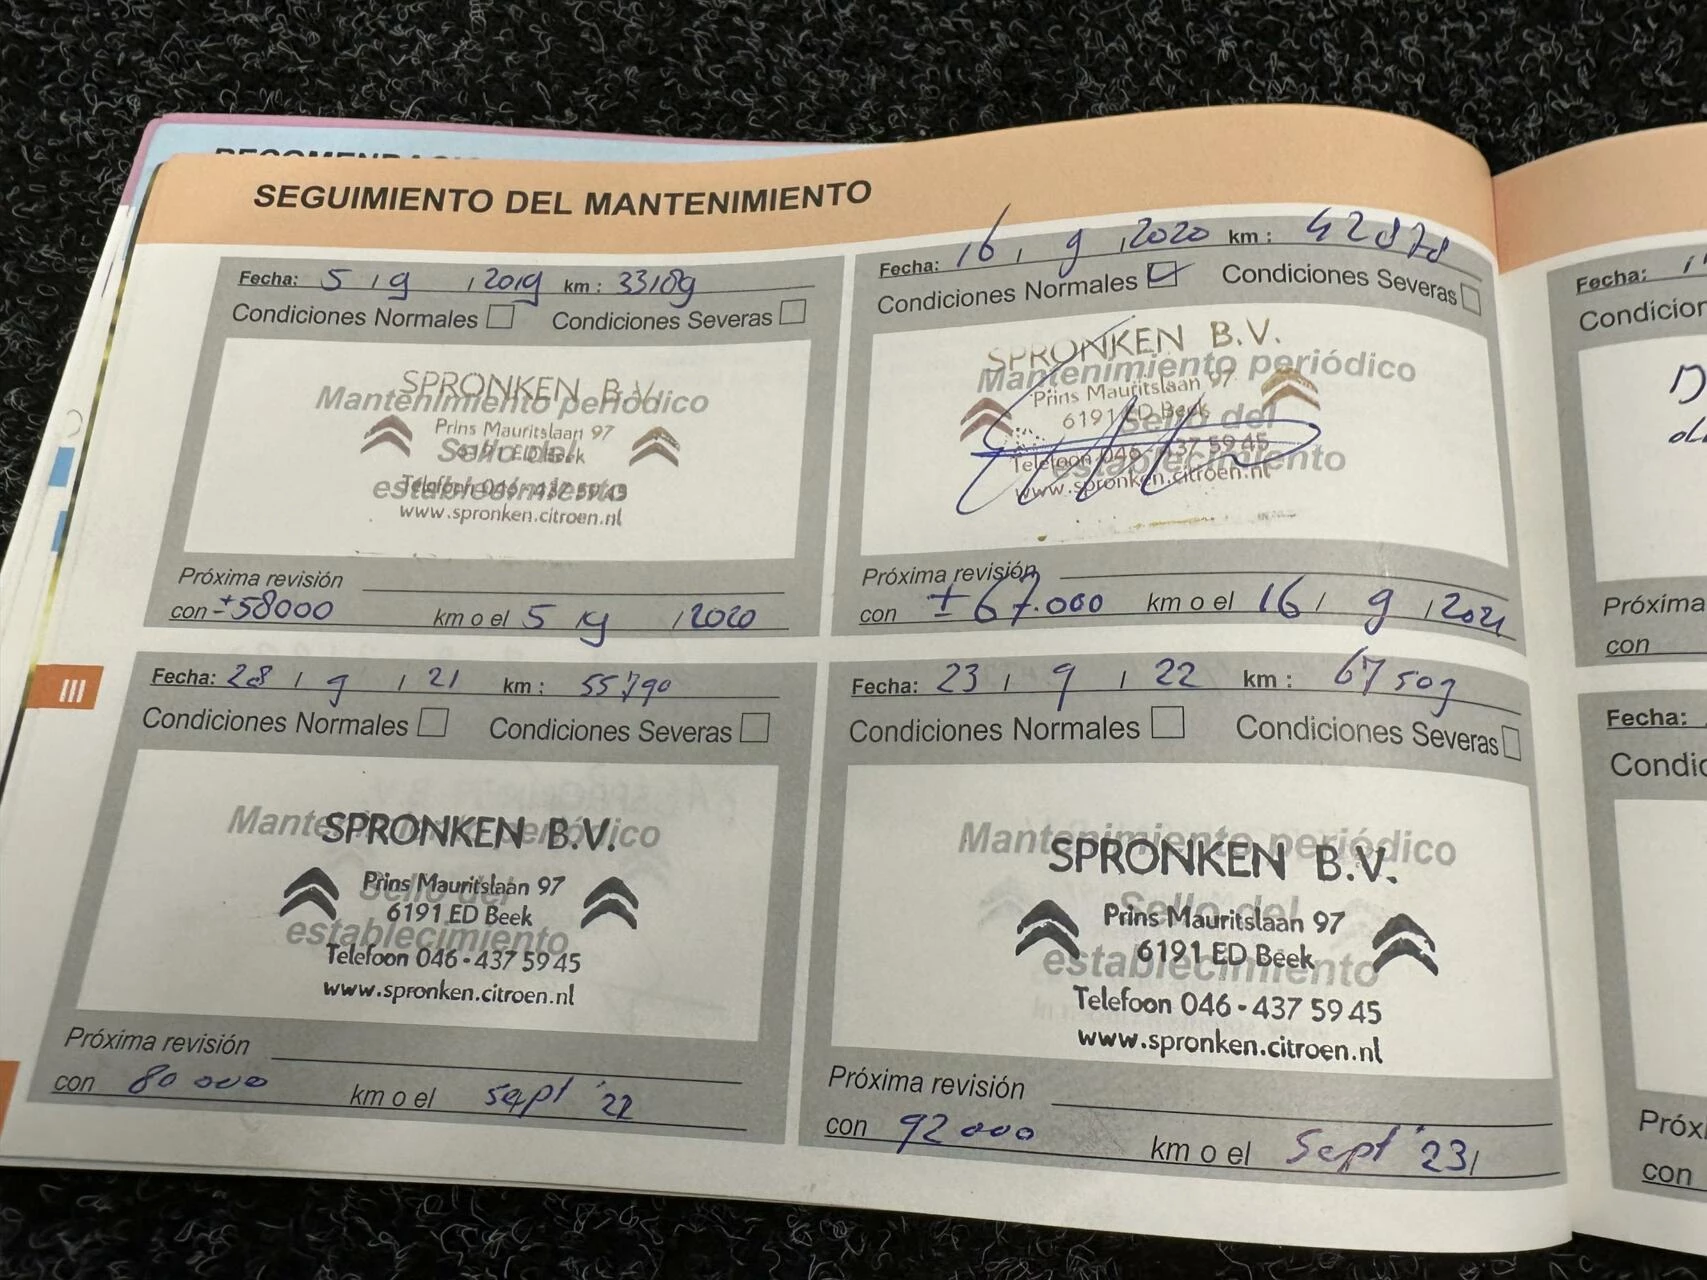 SEGUIMIENTO DEL MANTENIMIENTO
Fecha: 5 / 9 / 2019 km : 33189
Condiciones Normales Condiciones Severas
Mantenimiento periódico
Sello del
establecimiento
SPRONKEN B.V.
Prins Mauritslaan 97
6191 ED Beek
Telefoon 046 - 437 59 45
www.spronken.citroen.nl
Próxima revisión
con ± 58000 km o el 5 / 9 / 2020
Fecha: 16 / 9 / 2020 km : 42878
Condiciones Normales Condiciones Severas
Mantenimiento periódico
Sello del
establecimiento
SPRONKEN B.V.
Prins Mauritslaan 97
6191 ED Beek
Telefoon 046 - 437 59 45
www.spronken.citroen.nl
Próxima revisión
con ± 67.000 km o el 16 / 9 / 2021
III
Fecha: 28 / 9 / 21 km : 55790
Condiciones Normales Condiciones Severas
Mantenimiento periódico
Sello del
establecimiento
SPRONKEN B.V.
Prins Mauritslaan 97
6191 ED Beek
Telefoon 046 - 437 59 45
www.spronken.citroen.nl
Próxima revisión
con 80 000 km o el sept '22
Fecha: 23 / 9 / 22 km : 67509
Condiciones Normales Condiciones Severas
Mantenimiento periódico
Sello del
establecimiento
SPRONKEN B.V.
Prins Mauritslaan 97
6191 ED Beek
Telefoon 046 - 437 59 45
www.spronken.citroen.nl
Próxima revisión
con 92 000 km o el Sept '23 /
Fecha:
con
Fecha:
con